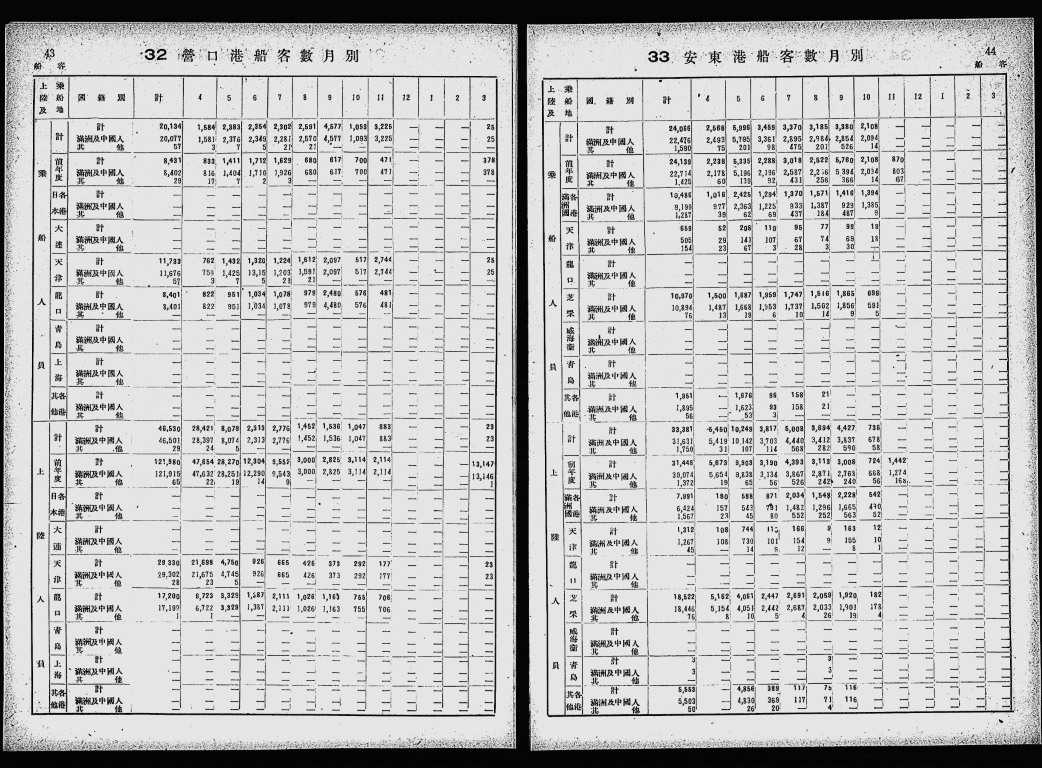 43
船 客
32 營口港船客數月別
上陸及 乘船地 國籍別 計 4 5 6 7 8 9 10 11 12 1 2 3
乘船人員
計
計 20,134 1,584 2,383 2,354 2,302 2,591 4,577 1,053 3,225 — — — 25
滿洲及中國人 20,077 1,581 2,376 2,349 2,281 2,570 4,577 1,093 3,225 — — — 25
其他 57 3 7 5 21 21 — — — — — — —
前年度
計 8,431 833 1,411 1,712 1,629 680 617 700 471 — — — 378
滿洲及中國人 8,402 816 1,404 1,710 1,926 680 617 700 471 — — — 378
其他 29 17 7 2 3 — — — — — — — —
日本各港
計
滿洲及中國人
其他
大連
計
滿洲及中國人
其他
天津
計 11,733 762 1,432 1,320 1,224 1,612 2,097 517 2,744 — — — 25
滿洲及中國人 11,676 759 1,425 1,203 1,591 2,097 517 2,744 — — — 25
其他 57 3 7 5 21 21 — — — — — — —
龍口
計 8,401 822 951 1,034 1,078 979 2,480 576 481
滿洲及中國人 8,401 822 951 1,034 1,078 979 4,480 576 481
其他
青島
計
滿洲及中國人
其他
上海
計
滿洲及中國人
其他
其他各港
計
滿洲及中國人
其他
上陸人員
計
計 46,530 28,421 8,079 2,313 2,776 1,452 1,536 1,047 883 — — — 23
滿洲及中國人 46,501 28,397 8,074 2,313 2,776 1,452 1,536 1,047 883 — — — 23
其他 29 24 5
前年度
計 121,980 47,654 28,270 12,304 9,552 3,000 2,825 3,114 2,114 — — — 13,147
滿洲及中國人 121,915 47,632 28,251 12,290 9,543 3,000 2,825 3,114 2,114 — — — 13,146
其他 65 22 19 14 9 — — — — — — — 1
日本各港
計
滿洲及中國人
其他
大連
計
滿洲及中國人
其他
天津
計 29,330 21,698 4,750 926 665 426 373 292 177 — — — 23
滿洲及中國人 29,302 21,675 4,745 926 665 426 373 292 177 — — — 23
其他 28 23 5
龍口
計 17,200 6,723 3,329 1,387 2,111 1,026 1,163 755 706
滿洲及中國人 17,199 6,722 3,329 1,387 2,111 1,026 1,163 755 706
其他 1 1
青島
計
滿洲及中國人
其他
上海
計
滿洲及中國人
其他
其他各港
計
滿洲及中國人
其他
44
船 客
33 安東港船客數月別
上陸及 乘船地 國籍別 計 4 5 6 7 8 9 10 11 12 1 2 3
乘船人員
計
計 24,066 2,568 5,996 3,459 3,370 3,185 3,380 2,108
滿洲及中國人 22,476 2,493 5,795 3,361 2,895 2,984 2,854 2,094
其他 1,590 75 201 98 475 201 526 14
前年度
計 24,139 2,238 5,335 2,288 3,018 2,522 5,760 2,108 870
滿洲及中國人 22,714 2,178 5,196 2,196 2,587 2,256 5,394 2,094 803
其他 1,425 60 139 92 431 256 366 14 67
滿洲國各港
計 10,486 1,016 2,425 1,294 1,370 1,571 1,416 1,394
滿洲及中國人 9,199 977 2,363 1,225 933 1,387 929 1,385
其他 1,287 39 62 69 437 184 487 9
天津
計 659 52 208 110 95 77 99 18
滿洲及中國人 505 29 141 107 67 74 69 18
其他 154 23 67 3 28 3 30
龍口
計
滿洲及中國人
其他
芝罘
計 10,970 1,500 1,687 1,959 1,747 1,516 1,865 696
滿洲及中國人 10,894 1,487 1,668 1,953 1,737 1,502 1,856 591
其他 76 13 19 6 10 14 9 5
威海衛
計
滿洲及中國人
其他
青島
計
滿洲及中國人
其他
其他各港
計 1,951 — 1,676 96 158 21
滿洲及中國人 1,895 — 1,623 93 158 21
其他 56 — 53 3
上陸人員
計
計 33,381 5,450 10,249 3,817 5,008 3,694 4,427 736
滿洲及中國人 31,631 5,419 10,142 3,703 4,440 3,412 3,837 678
其他 1,750 31 107 114 568 282 590 58
前年度
計 31,446 5,673 9,903 3,190 4,393 3,113 3,008 724 1,442
滿洲及中國人 30,074 5,654 9,838 3,134 3,867 2,871 2,768 668 1,274
其他 1,372 19 65 56 526 242 240 56 168
滿洲國各港
計 7,991 180 588 871 2,034 1,548 2,228 542
滿洲及中國人 6,424 157 543 791 1,482 1,296 1,665 490
其他 1,567 23 45 80 552 252 563 52
天津
計 1,312 108 744 115 166 9 163 12
滿洲及中國人 1,267 108 730 101 154 9 155 10
其他 45 — 14 9 12 — 8 1
龍口
計
滿洲及中國人
其他
芝罘
計 18,522 5,162 4,061 2,447 2,691 2,059 1,920 182
滿洲及中國人 18,446 5,154 4,051 2,442 2,687 2,033 1,901 178
其他 76 8 10 5 4 26 19 4
威海衛
計
滿洲及中國人
其他
青島
計 3 3
滿洲及中國人 3 3
其他
其他各港
計 5,553 — 4,856 389 117 75 116
滿洲及中國人 5,503 — 4,830 369 117 71 116
其他 50 — 26 20 — 4